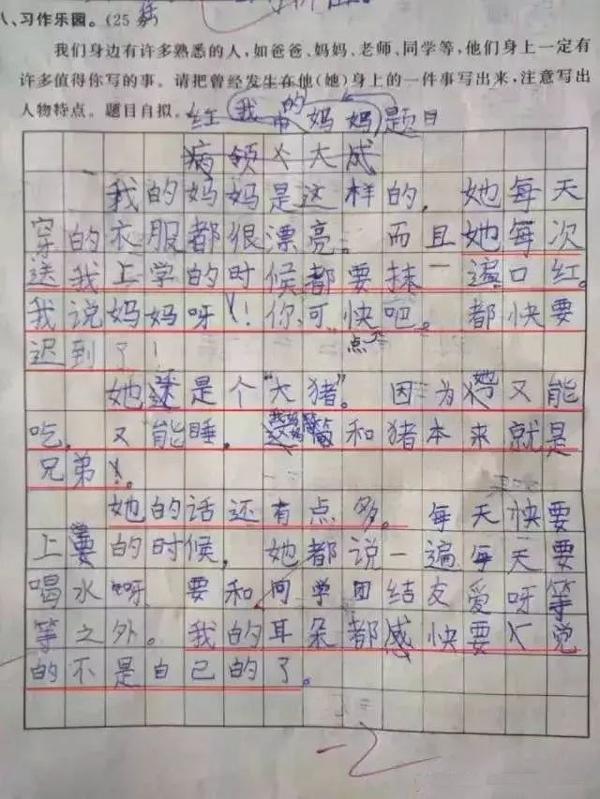 八、习作乐园。(25分)
我们身边有许多熟悉的人,如爸爸、妈妈、老师、同学等,他们身上一定有
许多值得你写的事。请把曾经发生在他(她)身上的一件事写出来,注意写出
人物特点。题目自拟。
我的妈妈 题目
我的妈妈是这样的,她每天
穿的衣服都很漂亮。而且她每次
送我上学的时候都要抹一遍口红。
我说妈妈呀!你可快点吧。都快要
迟到了!
她还是个“大猪”。因为她又能
吃,又能睡,我妈妈和猪本来就是
兄弟。
她的话还有点多。每天快要
上的时候,她都说一遍每天要
喝水呀要和同学团结友爱呀等
等之外。我的耳朵都感快要觉
的不是自己的了。
-2